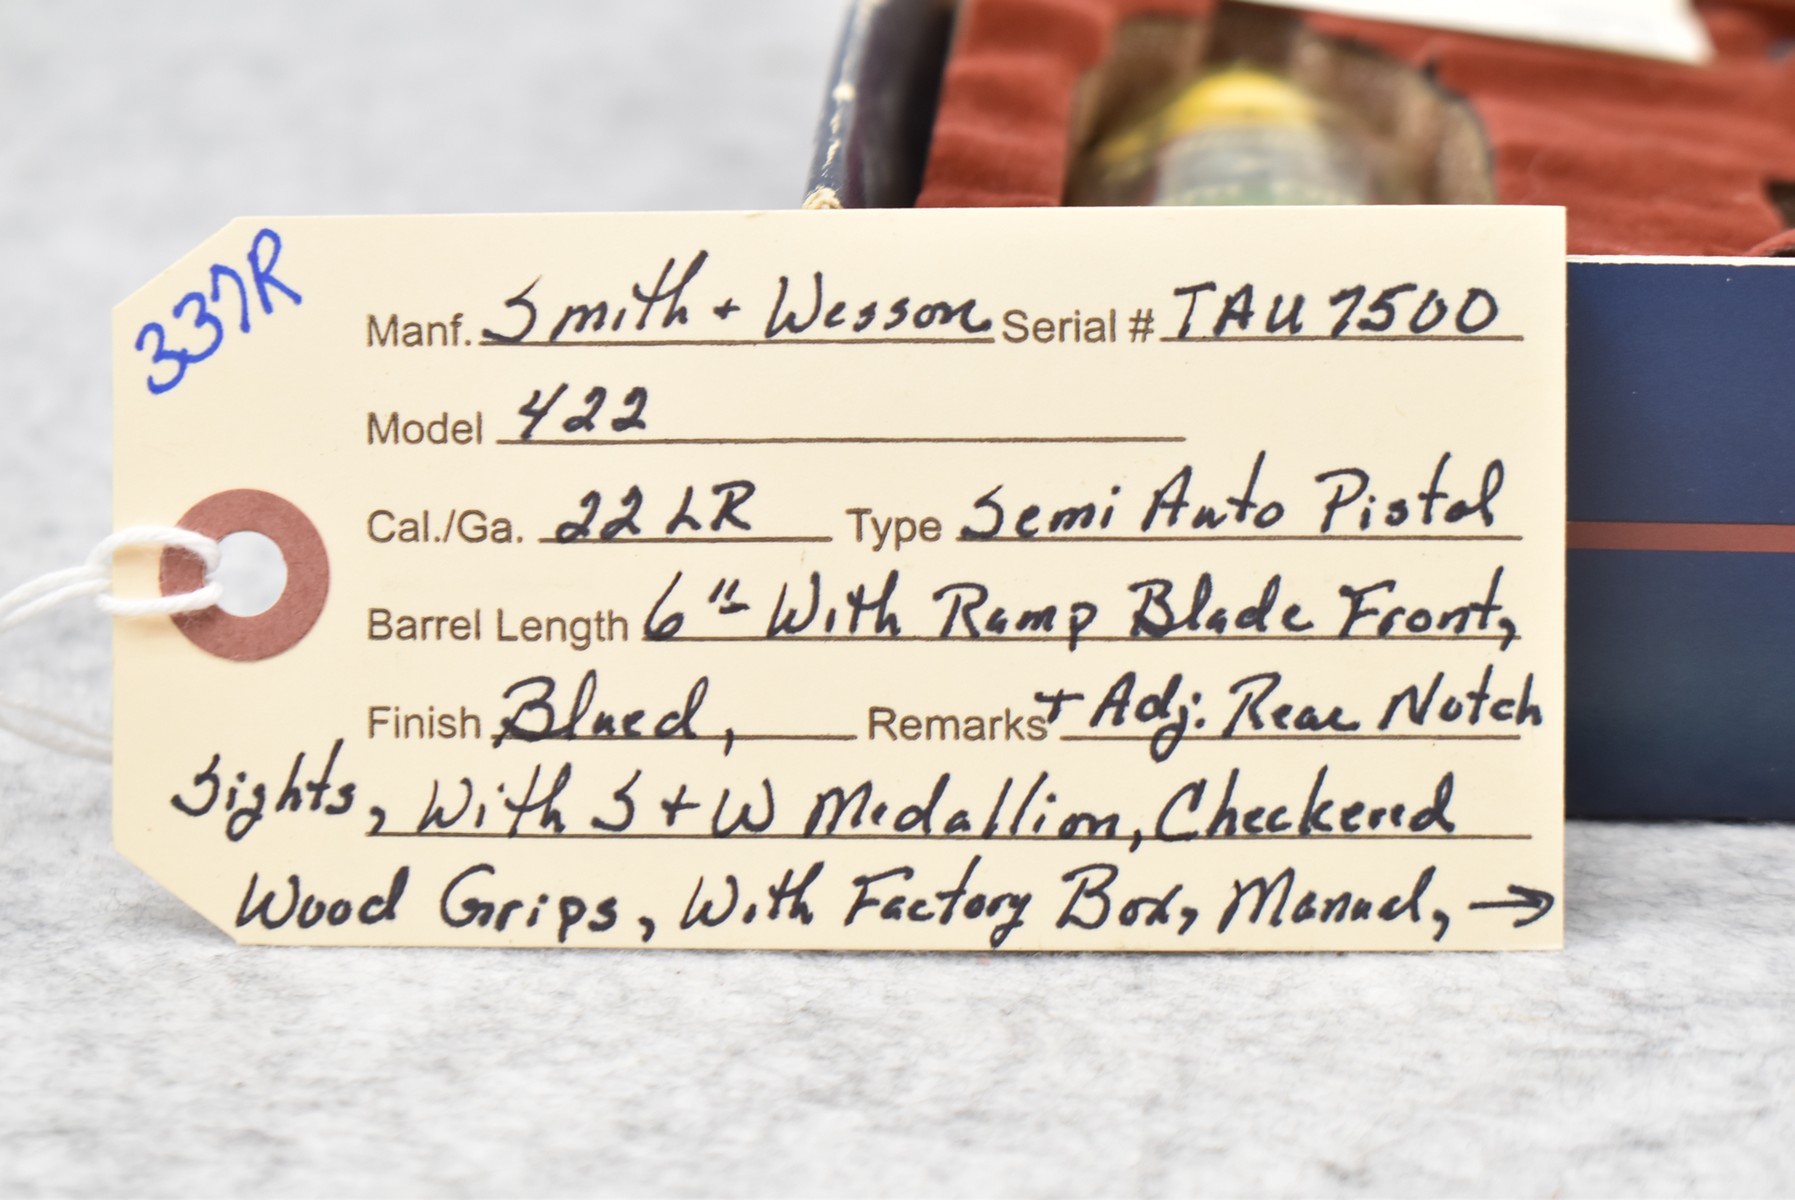 337R
Manf. Smith + Wesson Serial # TAU7500
Model 422
Cal./Ga. 22 LR Type Semi Auto Pistol
Barrel Length 6" With Ramp Blade Front,
Finish Blued, Remarks + Adj. Rear Notch
Sights, With S + W Medallion, Checkered
Wood Grips, With Factory Box, Manual, →